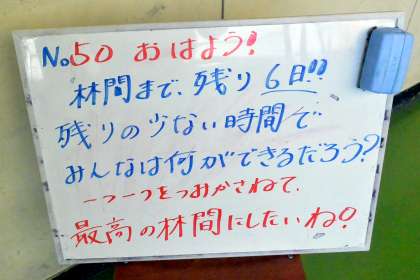 No.50 おはよう!
林間まで、残り6日!!
残りの少ない時間で
みんなは何ができるだろう?
一つ一つをつみかさねて、
最高の林間にしたいね!